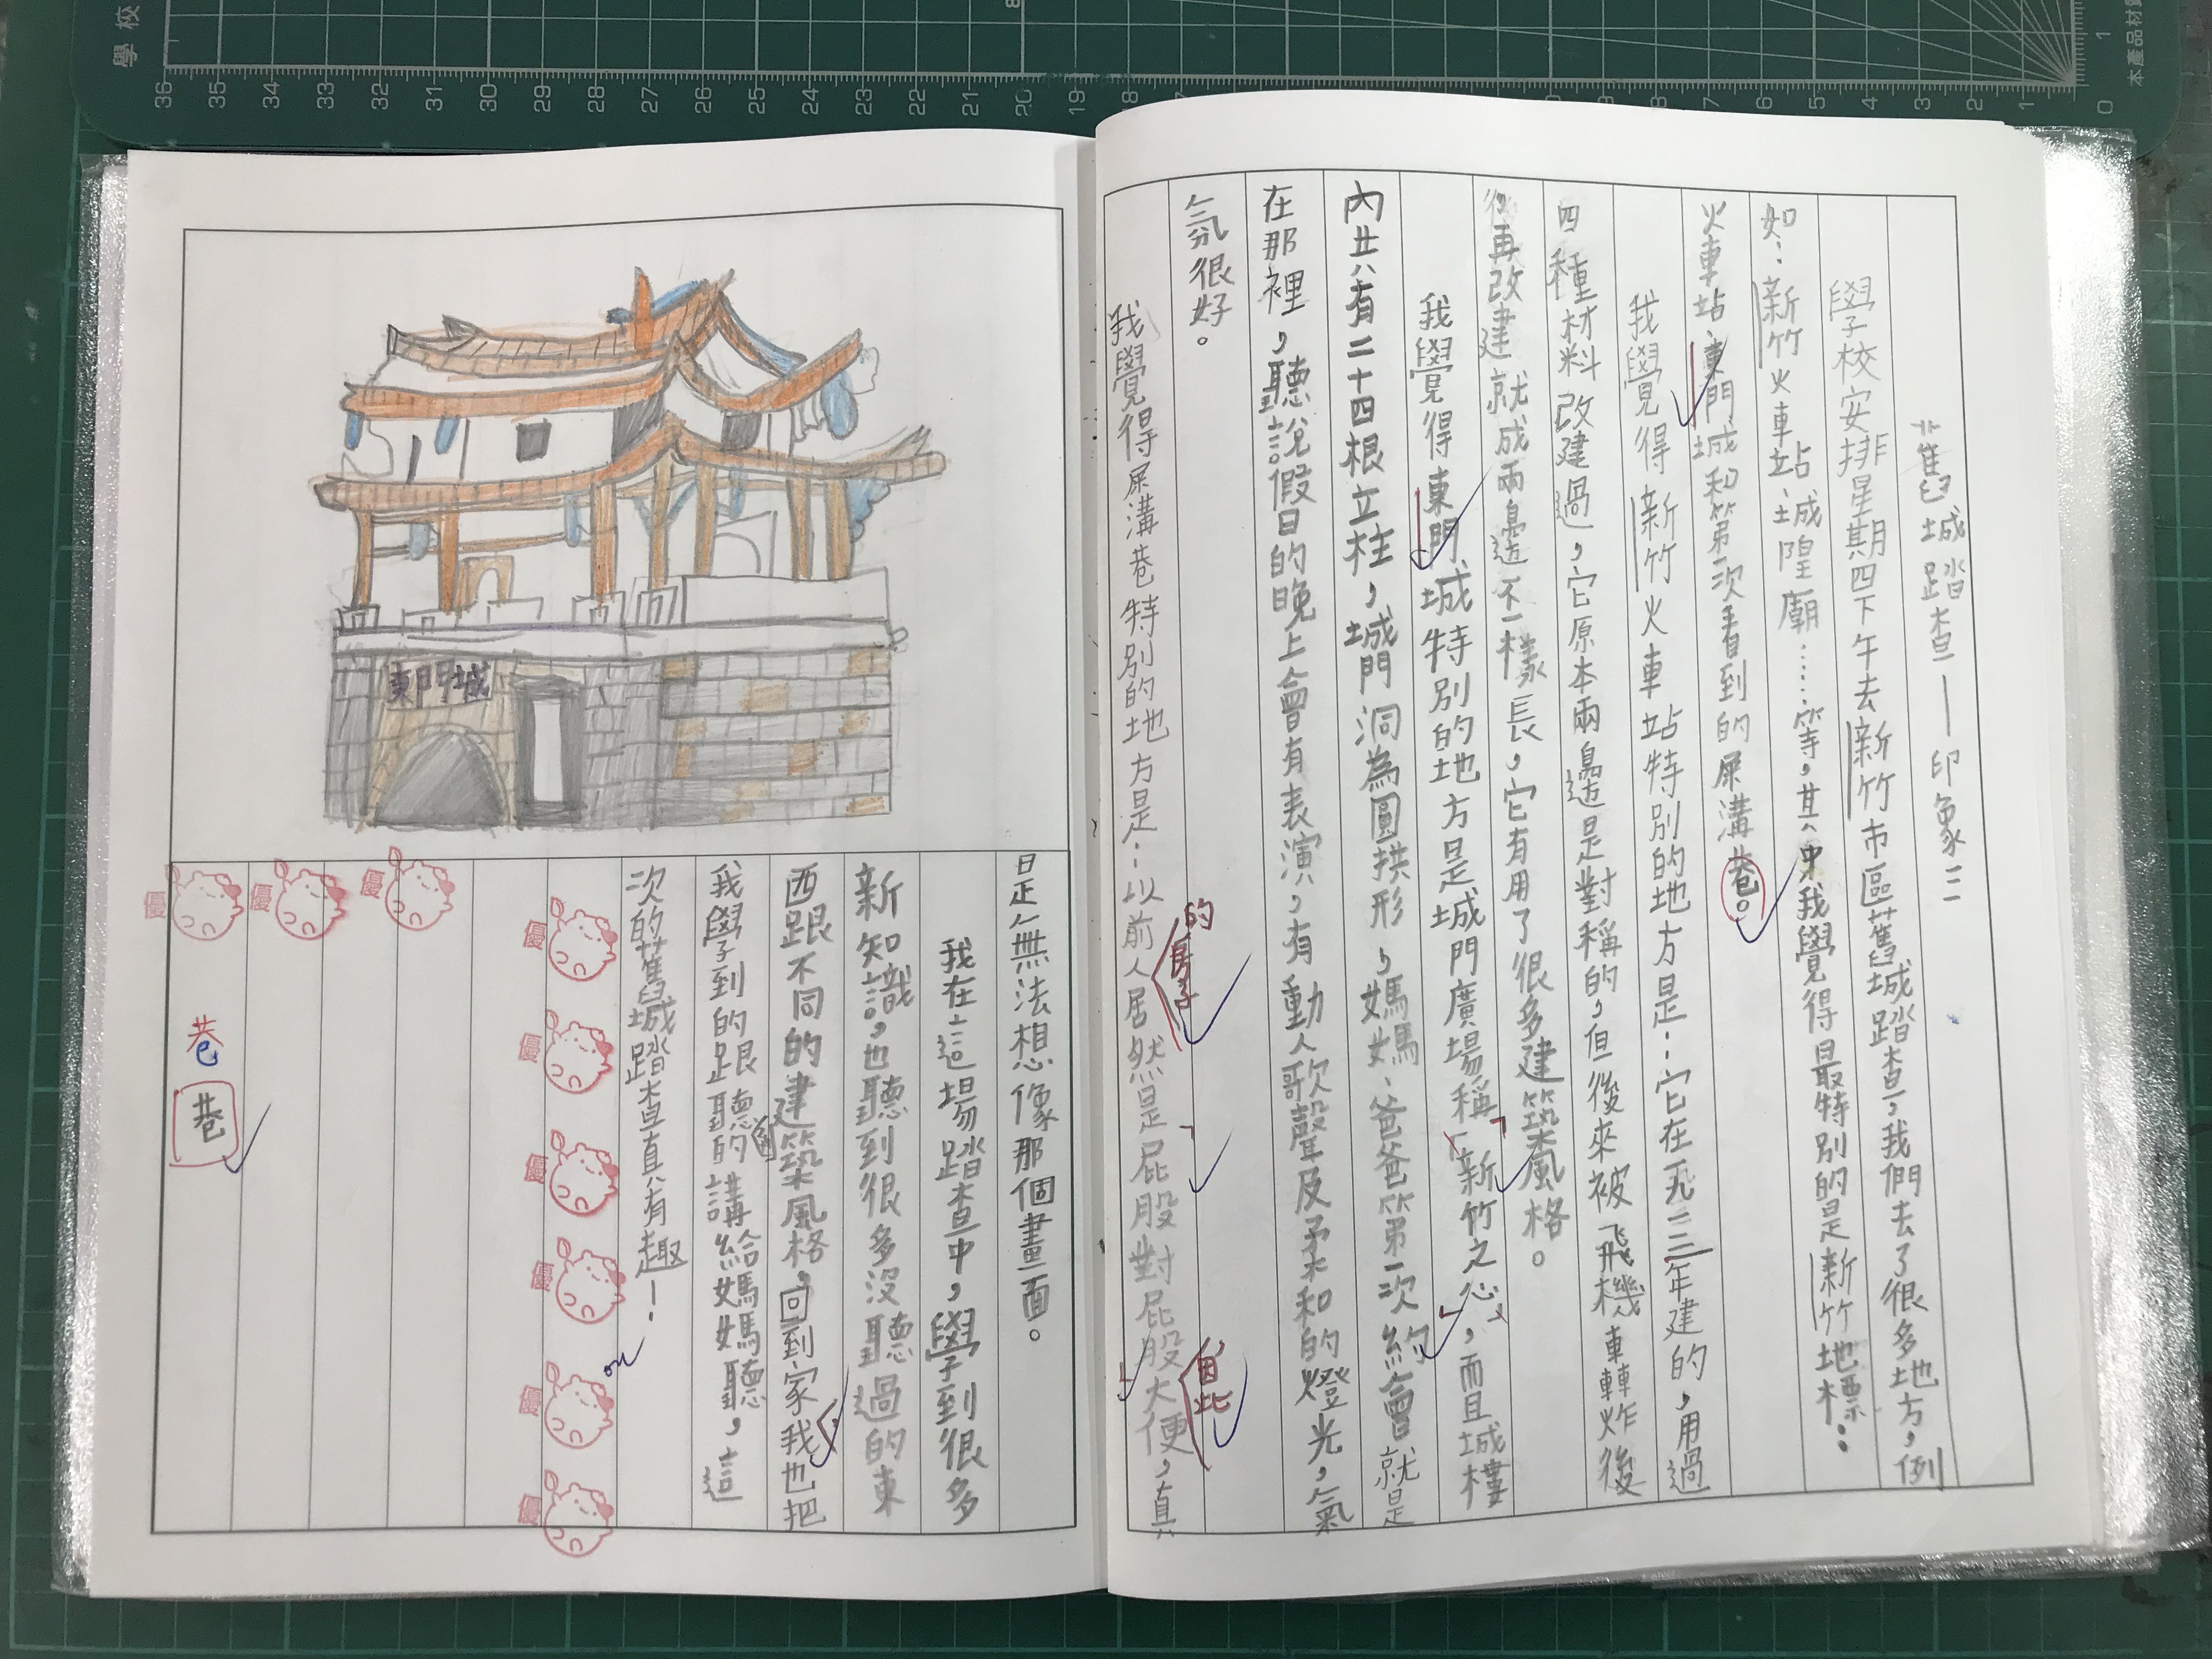 舊城踏查—印象三
學校安排星期四下午去新竹市區舊城踏查,我們去了很多地方,例
如:新竹火車站、城隍廟……等,其中我覺得最特別的是新竹地標:
火車站、東門城和第一次看到的屎溝巷。
我覺得新竹火車站特別的地方是:它在一九一三年建的,用過
四種材料改建過,它原本兩邊是對稱的,但後來被飛機車轟炸後
後再改建就成兩邊不一樣長,它有用了很多建築風格。
我覺得東門城特別的地方是城門廣場稱「新竹之心」,而且城樓
內共有二十四根立柱,城門洞為圓拱形,媽媽、爸爸第一次約會就是
在那裡,聽說假日的晚上會有表演,有動人歌聲及柔和的燈光,氣
氛很好。
我覺得屎溝巷特別的地方是:以前人的房子居然是「屁股對屁股」大便,因此真
是無法想像那個畫面。
我在這場踏查中,學到很多
新知識,也聽到很多沒聽過的東
西跟不同的建築風格,回到家,我也把
我學到的跟聽到的講給媽媽聽,這
次的舊城踏查真有趣!
東門城
優
優
優
優
優
優
優
優
優
巷
巷
36 35 34 33 32 31 30 29 28 27 26 25 24 23 22 21 20 19 18 7 9 8 7 6 5 4 3 2 1 0
學校
本產品材質